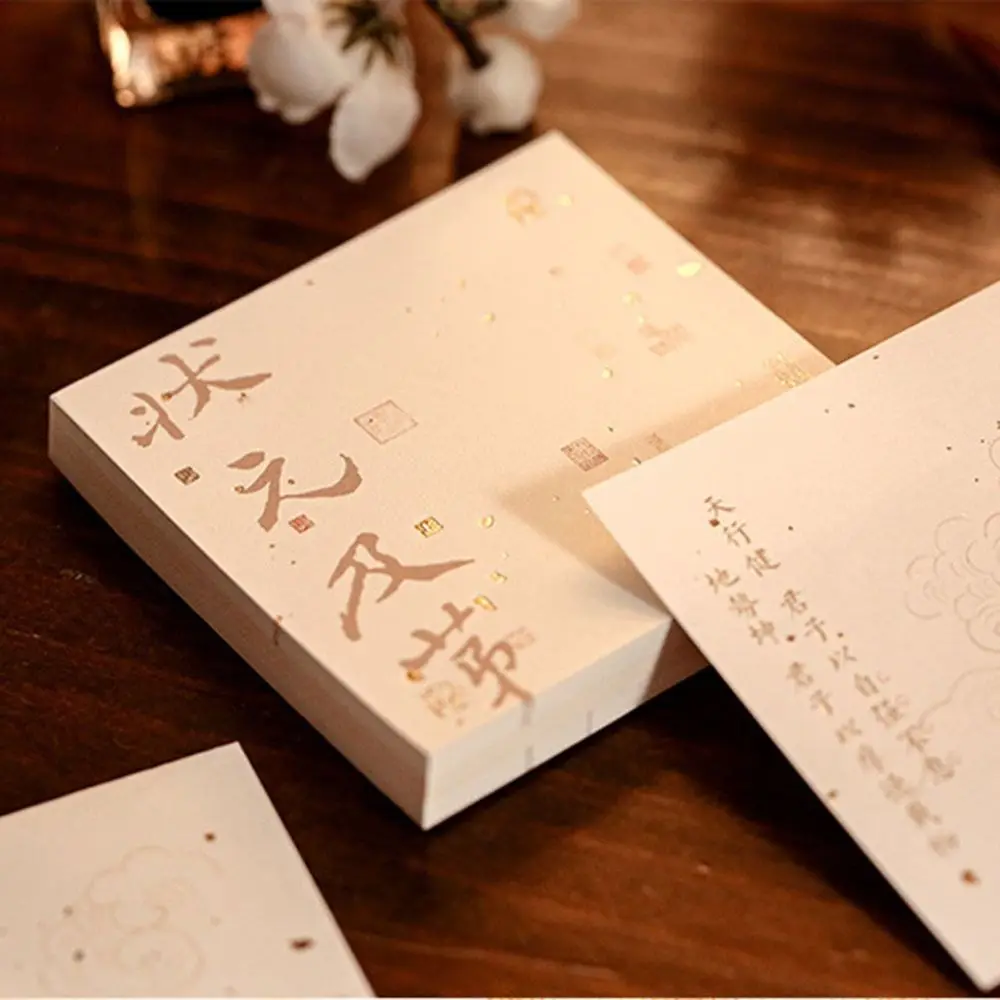 状元及第
天行健 君子以自强不息
地势坤 君子以厚德载物